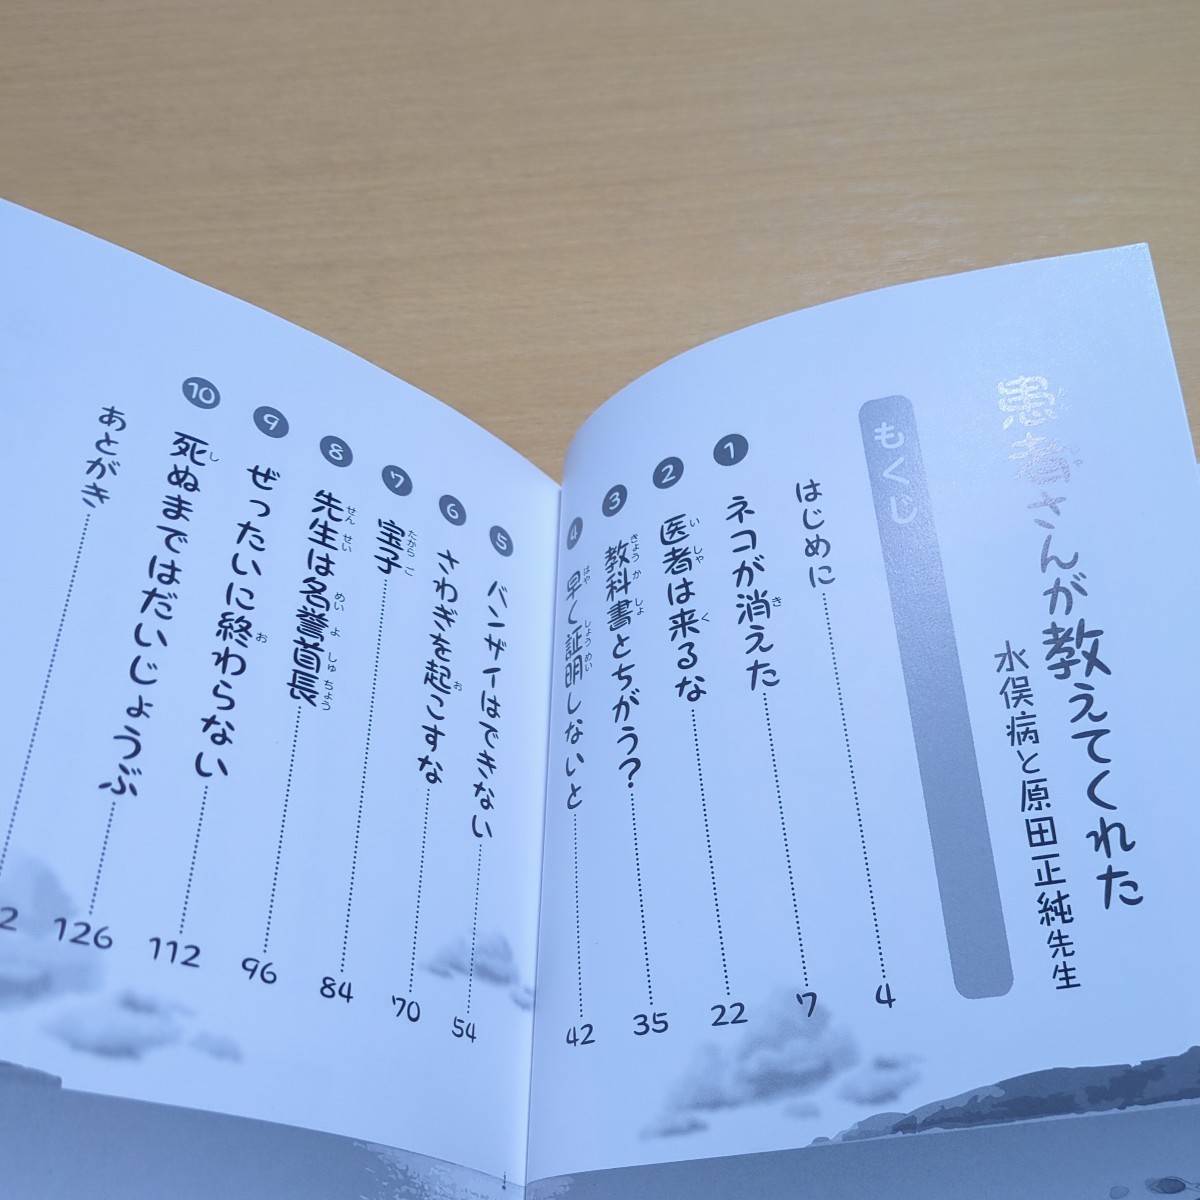 患者さんが教えてくれた
水俣病と原田正純先生
もくじ
はじめに 4
1 ネコが消えた 7
2 医者は来るな 22
3 教科書とちがう? 35
4 早く証明しないと 42
5 バンザイはできない 54
6 さわぎを起こすな 70
7 宝子 84
8 先生は名誉首長 96
9 ぜったいに終わらない 112
10 死ぬまではだいじょうぶ 126
あとがき